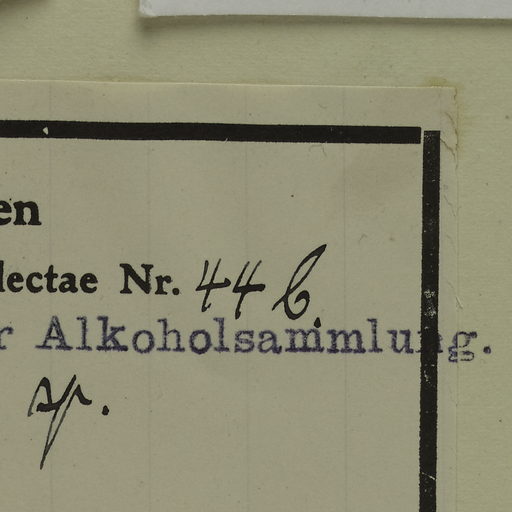 en
lectae Nr. 44 b.
r Alkoholsammlung.
sp.